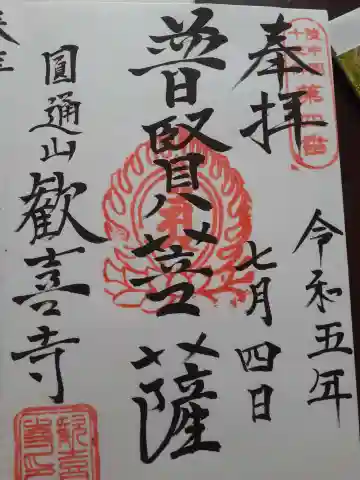 奉拝
令和五年
七月四日
普賢菩薩
圓通山歓喜寺